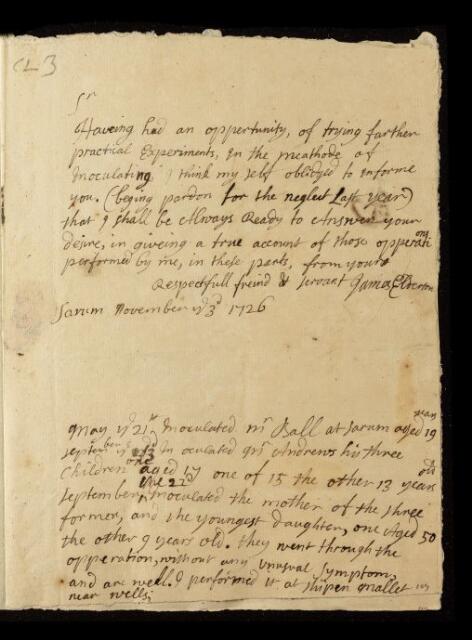 CL3
Sr
Haveing had an oppertunity, of trying farther
practical Experiments, in the meathode of
Inoculating I think my self oblidged to informe
you, (beging pardon for the neglect Last year)
that I shall be Always Ready to Answer your
desire, in giveing a true account of those opperations
performed by me, in these parts, from yours
Respectfull freind & servant James Elderton
Sarum November ye 3d 1726
May ye 21st Inoculated mr Ball at Sarum aged 19 years
September ye 3d Inoculated mrs Andrews his three
Children one aged 17 one of 15 the other 13 years old
September the 22d Inoculated the mother of the three
former, and the youngest daughter, one Aged 50
the other 9 years old. they went through the
opperation, without any unusual symptom,
and are well. I performed it at Shipen mallet
near wells;